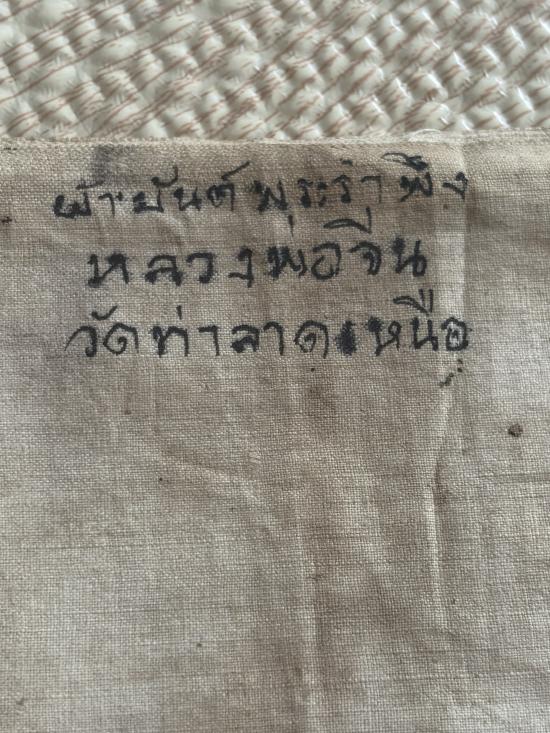 ผ้ายันต์พระรำพึง
หลวงพ่อจีน
วัดท่าลาดเหนือ